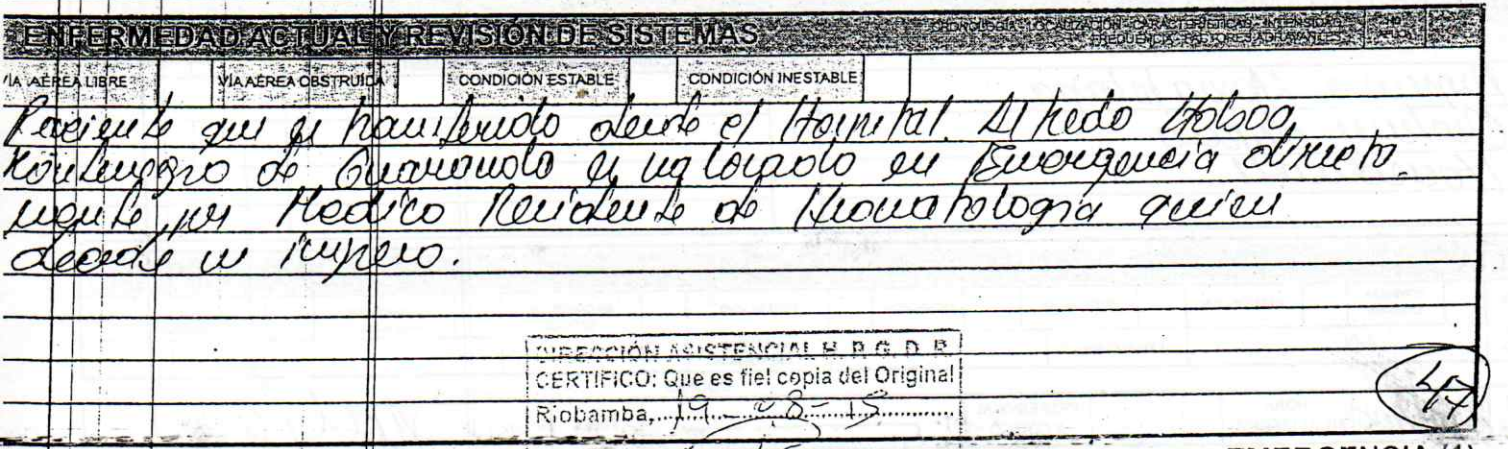 ENFERMEDAD ACTUAL Y REVISIÓN DE SISTEMAS
CRONOLOGÍA - LOCALIZACIÓN - CARACTERÍSTICAS - INTENSIDAD -
FRECUENCIA - FACTORES AGRAVANTES
VÍA AÉREA LIBRE VÍA AÉREA OBSTRUIDA CONDICIÓN ESTABLE CONDICIÓN INESTABLE
Paciente que es transferido desde el Hospital Alfredo Noboa
Montenegro de Guaranda es valorado en Emergencia directa
mente por Medico Residente de Traumatologia quien
decide su ingreso.
DIRECCIÓN ASISTENCIAL H. P. G. D. R.
CERTIFICO: Que es fiel copia del Original
Riobamba, 19-08-15
47
EMERGENCIA (1)